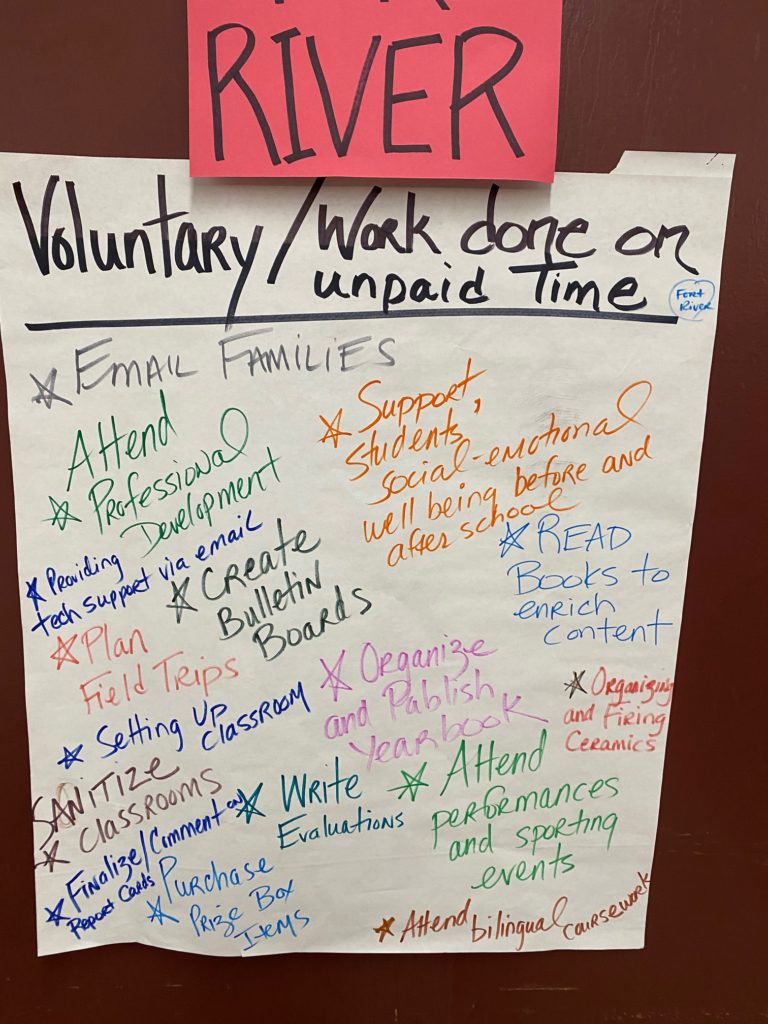 RIVER
Voluntary/Work done on
unpaid Time
Fort
River
* EMAIL FAMILIES
Attend
* Professional
Development
* Support
students'
social-emotional
well being before and
after school
* Providing
tech support via email
* Create
Bulletin
Boards
* READ
Books to
enrich
content
* Plan
Field Trips
* Organize
and Publish
Yearbook
* Organizing
and Firing
Ceramics
* Setting Up
Classroom
SANITIZE
* Classrooms
* Write
Evaluations
* Attend
performances
and sporting
events
* Finalize/Comment on
Report Cards
* Purchase
Prize Box
Items
* Attend bilingual coursework